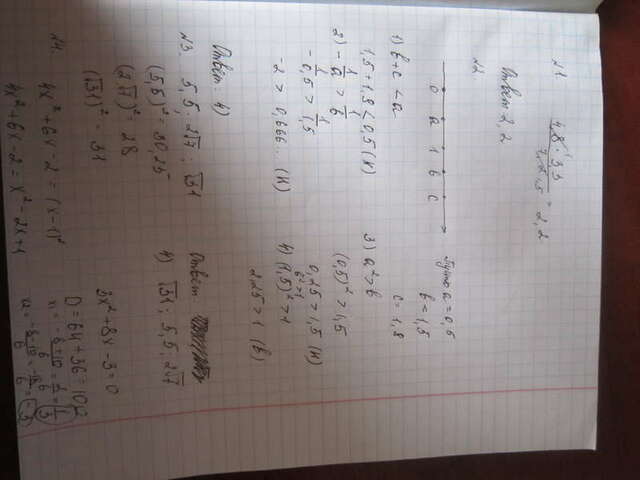 N1
4,8 · 3,3 / 7,2 · 1,5 = 2,2
Ответ 2,2
N2
0 a 1 b c
Пусть a = 0,5
b = 1,5
c = 1,8
1) b + c < a
1,5 + 1,8 < 0,5 (н)
2) - 1/a > 1/b
- 1/0,5 > 1/1,5
-2 > 0,666... (н)
3) a² > b
(0,5)² > 1,5
0,25 > 1,5 (н)
4) b² > 1
(1,5)² > 1
2,25 > 1 (в)
Ответ: 4)
N3. 5,5; 2√7; √31
(5,5)² = 30,25
(2√7)² = 28
(√31)² = 31
4) √31; 5,5; 2√7
Ответ:
N4. 4x² + 6x - 2 = (x - 1)²
4x² + 6x - 2 = x² - 2x + 1
3x² + 8x - 3 = 0
D = 64 + 36 = 10²